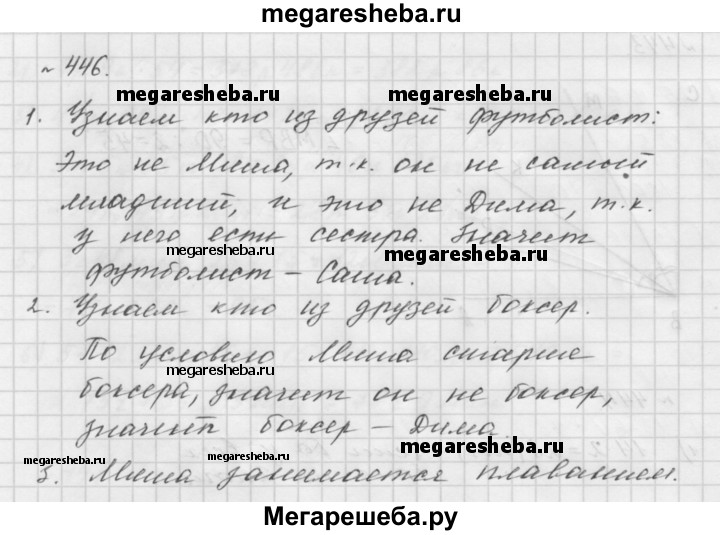 megaresheba.ru
№ 446.
megaresheba.ru megaresheba.ru
1. Узнаем кто из друзей футболист:
Это не Миша, т.к. он не самый
младший, и это не Дима, т.к.
у него есть сестра. Значит
megaresheba.ru megaresheba.ru
футболист – Саша.
2. Узнаем кто из друзей боксер.
По условию Миша старше
megaresheba.ru megaresheba.ru
боксера, значит он не боксер,
значит боксер – Дима
megaresheba.ru megaresheba.ru megaresheba.ru
3. Миша занимается плаванием.
Мегарешеба.ру